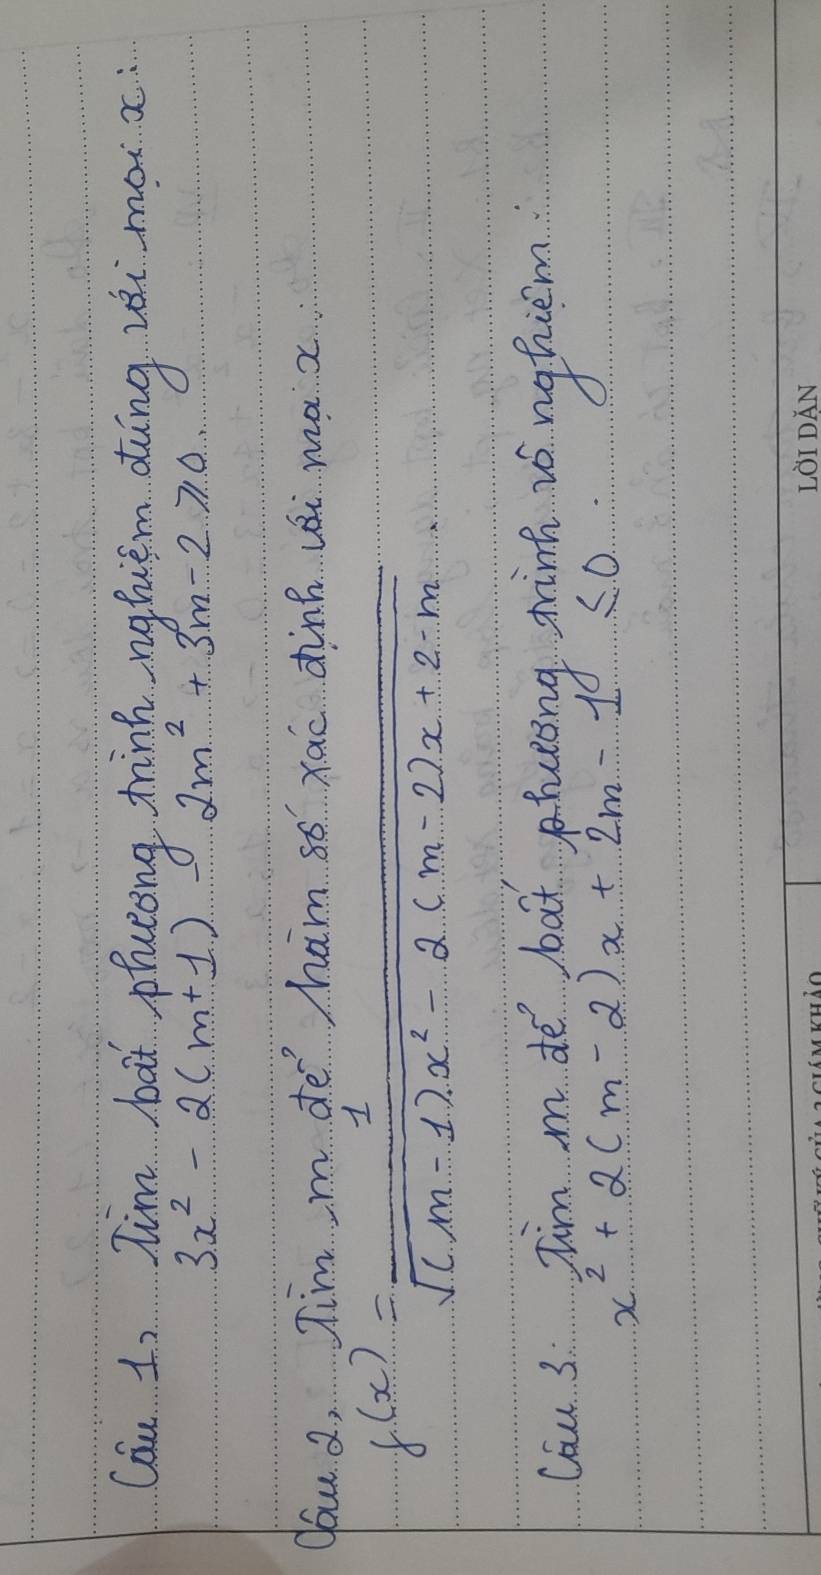 Câu 1, Tìm bất phương trình nghiệm đúng với mọi x:
3x² - 2(m+1) - 2m² + 3m - 2 ≥ 0.
Câu 2, Tìm m để hàm số xác định với mọi x:
f(x) = 1 / √(m-1)x² - 2(m-2)x + 2-m.
Câu 3: Tìm m để bất phương trình vô nghiệm:
x² + 2(m-2)x + 2m - 1 ≤ 0.
LỜI DẶN